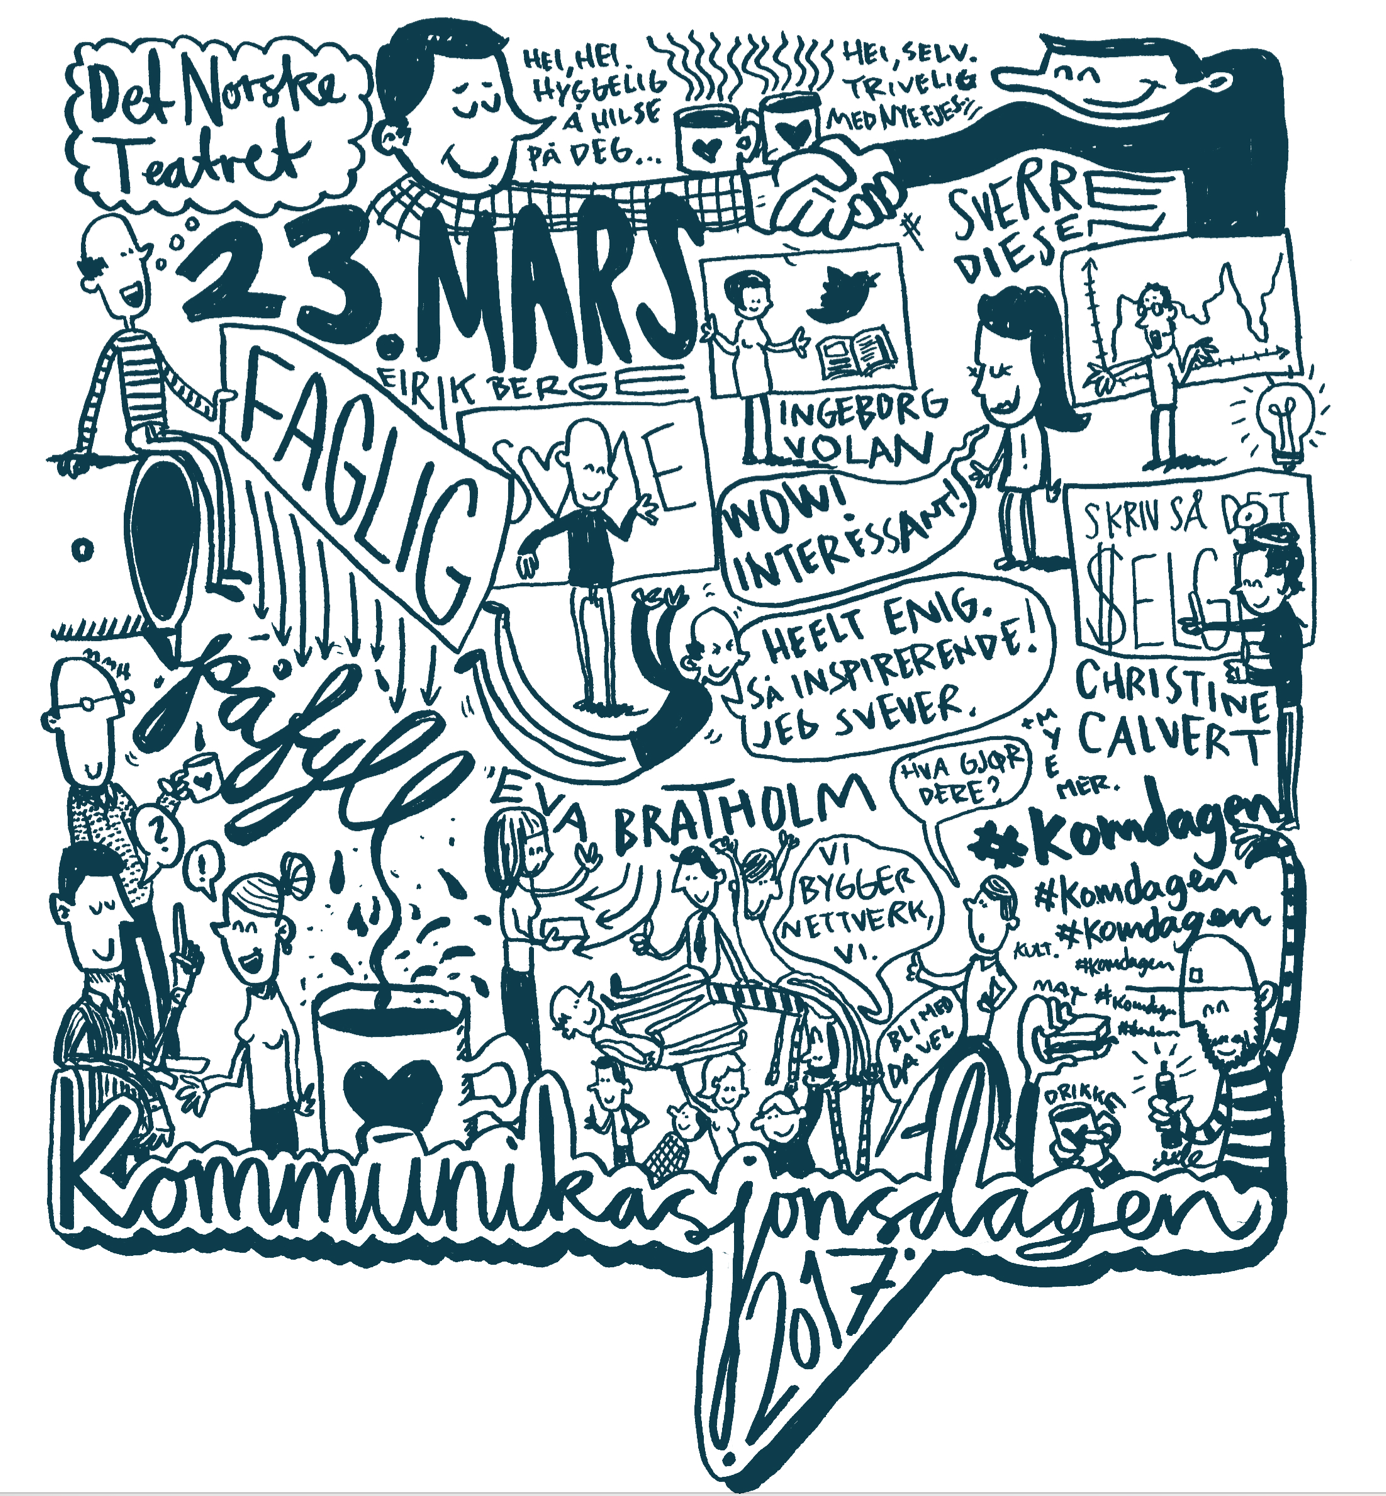 Det Norske
Teatret
HEI, HEI.
HYGGELIG
Å HILSE
PÅ DEG...
HEI, SELV.
TRIVELIG
MED NYE FJES:
SVERRE
DIESEN
23. MARS
EIRIK BERGE
FAGLIG
påfyll
INGEBORG
VOLAN
WOW!
INTERESSANT!
HEELT ENIG.
SÅ INSPIRERENDE!
JEG SVEVER.
SKRIV SÅ DET
$ELG
CHRISTINE
CALVERT
+ MYE
MER.
EVA BRATHOLM
HVA GJØR
DERE?
VI
BYGGER
NETTVERK,
VI.
BLI MED
DA VEL
?
!
#Komdagen
#Komdagen
#Komdagen
KULT.
#Komdagen
MAT
#Komdagen
DRIKKE
Kommunikasjonsdagen
2017